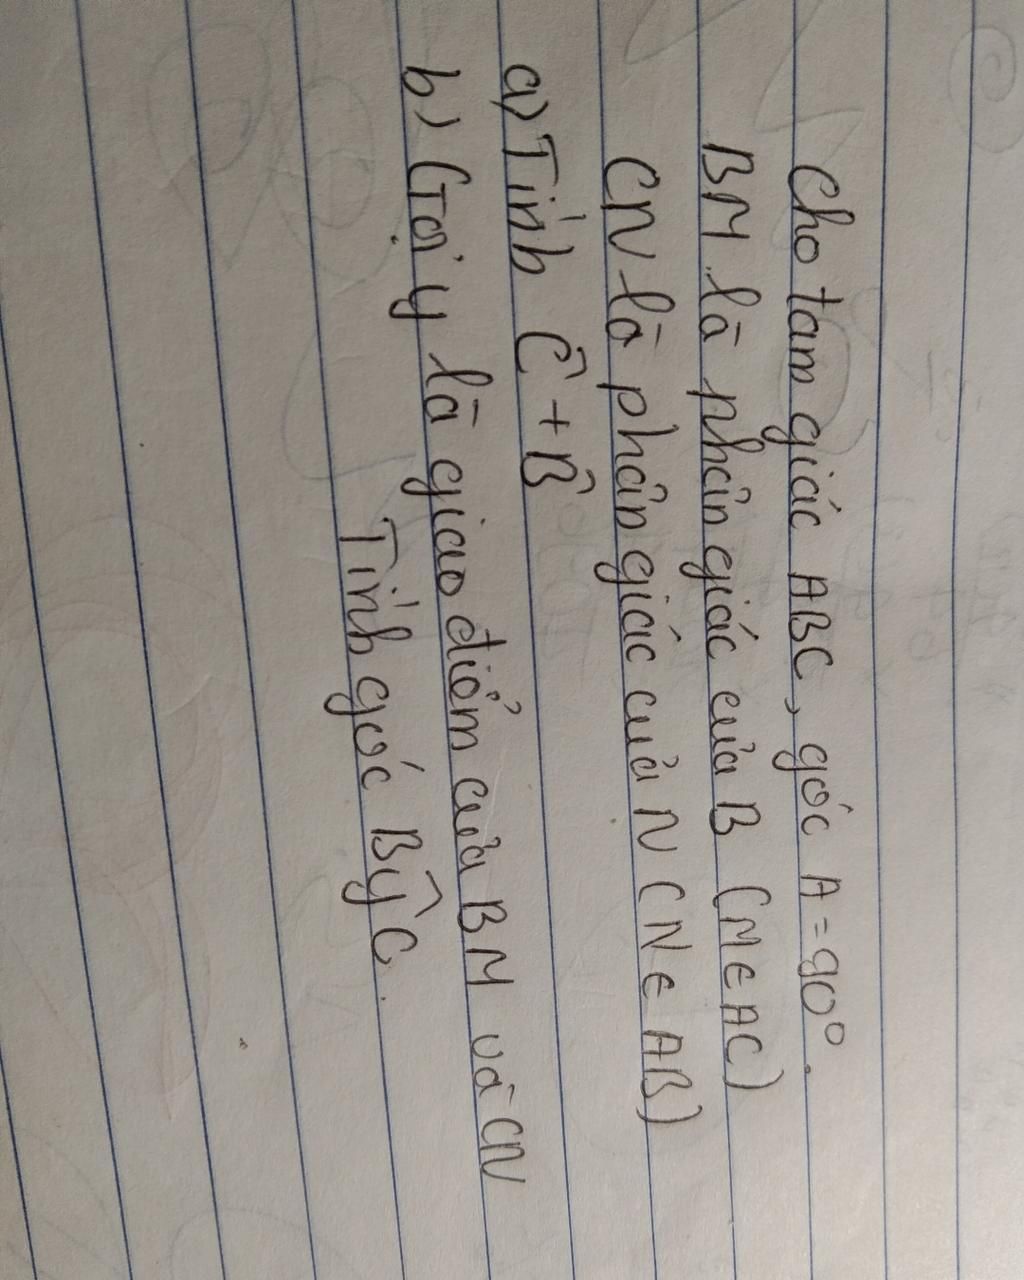 Cho tam giác ABC, góc A = 90°.
BM là phân giác của B (M ∈ AC)
CN là phân giác của N (N ∈ AB)
a) Tính Ĉ + B̂
b) Gọi y là giao điểm của BM và CN
Tính góc BŷC.